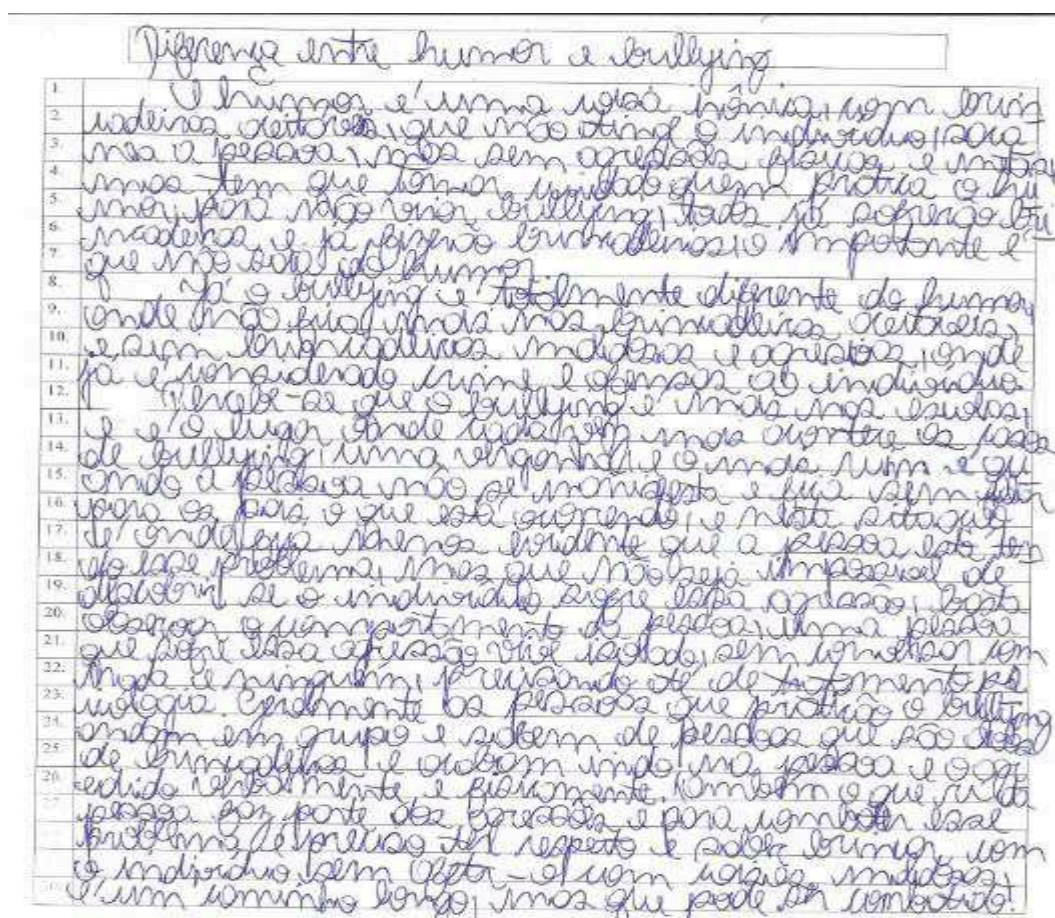 Diferença entre humor e bullying
1. O humor é uma coisa irônica, com brin
2. cadeiras aceitaveis, que não ating o individuo, soua
3. nea a pessoa, mas sem agressões fisicas e
4. mas tem que tomar cuidado quem pratica o hu
5. mor, para não virar bullying, todos já sofrerão bri
6. ncadeiras e já fizerão brincadeiras, o importante é
7. que não saia do humor.
8. Já o bullying é totalmente diferente do humor,
9. onde não fica mais nas brincadeiras aceitaveis,
10. e sim brincadeiras maldosas e agressivas, onde
11. já é considerado crime e ofensas ao individuo.
12. Percebe-se que o bullying é mais nas escolas,
13. e é o lugar onde cada vem mais acontece os casos
14. de bullying, uma vergonha, e o mais ruim é qu
15. ando a pessoa não se manifesta e fica sem
16. para os pais o que está ocorrendo, e nesta sitação
17. é onde fica menos evidente que a pessoa esta ten
18. do esse problema, mas que não seja impossivel de
19. descobrir se o individuo sofre essa agressão, basta
20. observar o comportamento da pessoa, uma pessoa
21. que sofre essa agressão vive isolada, sem conversar com
22. nada e ninguém, precisando até de tratamento ps
23. icologico. Geralmente as pessoas que praticão o bullying
24. andam em grupo e sabem de pessoas que são
25. de brincadeiras e acabam indo na pessoa e o agr
26. edido verbalmente e fisicamente. Também o que
27. pessoa faz parte das agressões e para combater esse
problema é preciso ter respeito e saber brincar com
o individuo sem com coisas maldosas,
30. é um caminho longo, mas que pode ser combatido.